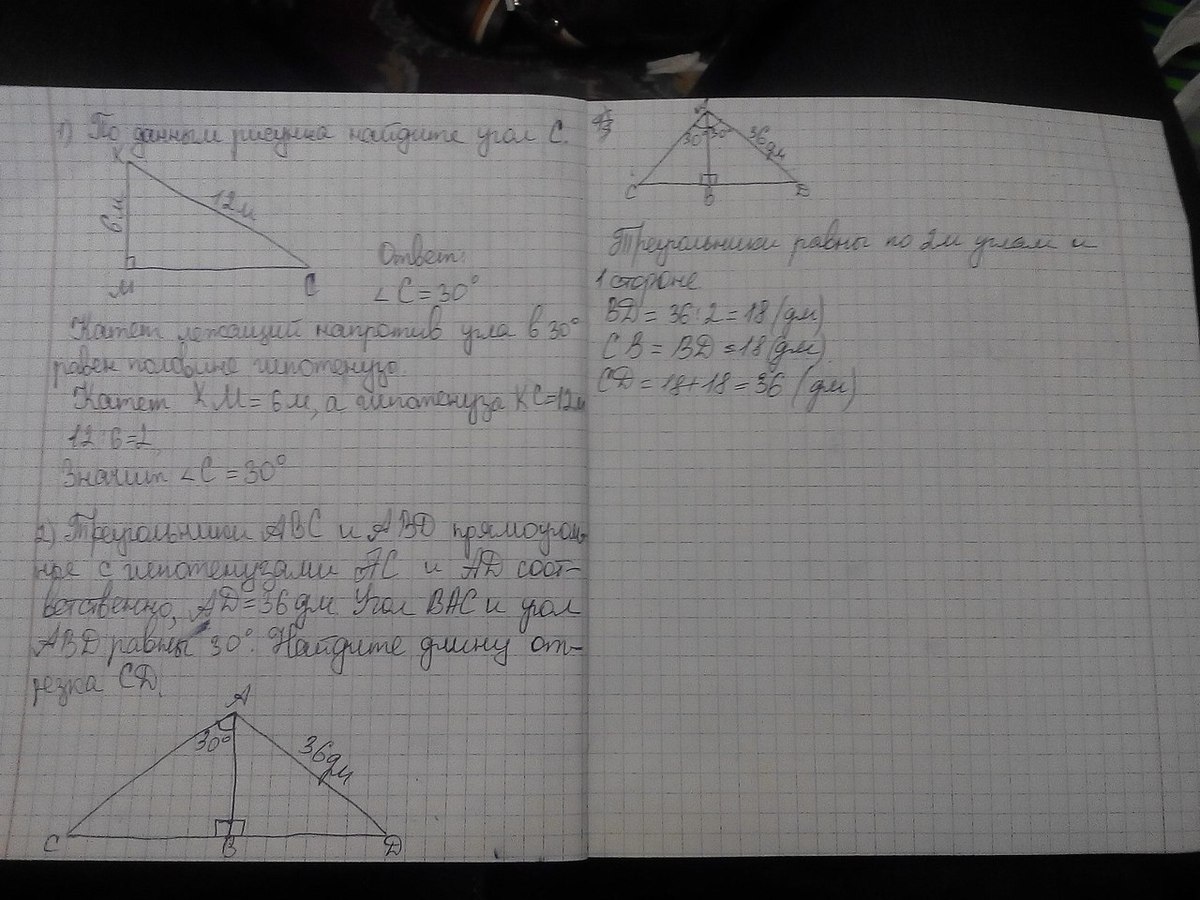 1) По данным рисунка найдите угол С.
К
6м
12м
М
С
Ответ:
∠С = 30°
Катет лежащий напротив угла в 30°
равен половине гипотенузе.
Катет КМ = 6м, а гипотенуза КС=12м
12:6=2
Значит ∠С = 30°
2) Треугольники АВС и АВD прямоуголь-
ные с гипотенузами АС и АD соот-
ветственно, АD=36дм. Угол ВАС и угол
АВD равны 30°. Найдите длину от-
резка СD.
А
30°
36дм
С
В
D
А
30°
30°
36дм
С
В
D
Треугольники равны по 2м углам и
1 стороне
ВD = 36:2 = 18 (дм)
СВ = ВD = 18(дм)
СD = 18+18 = 36 (дм)